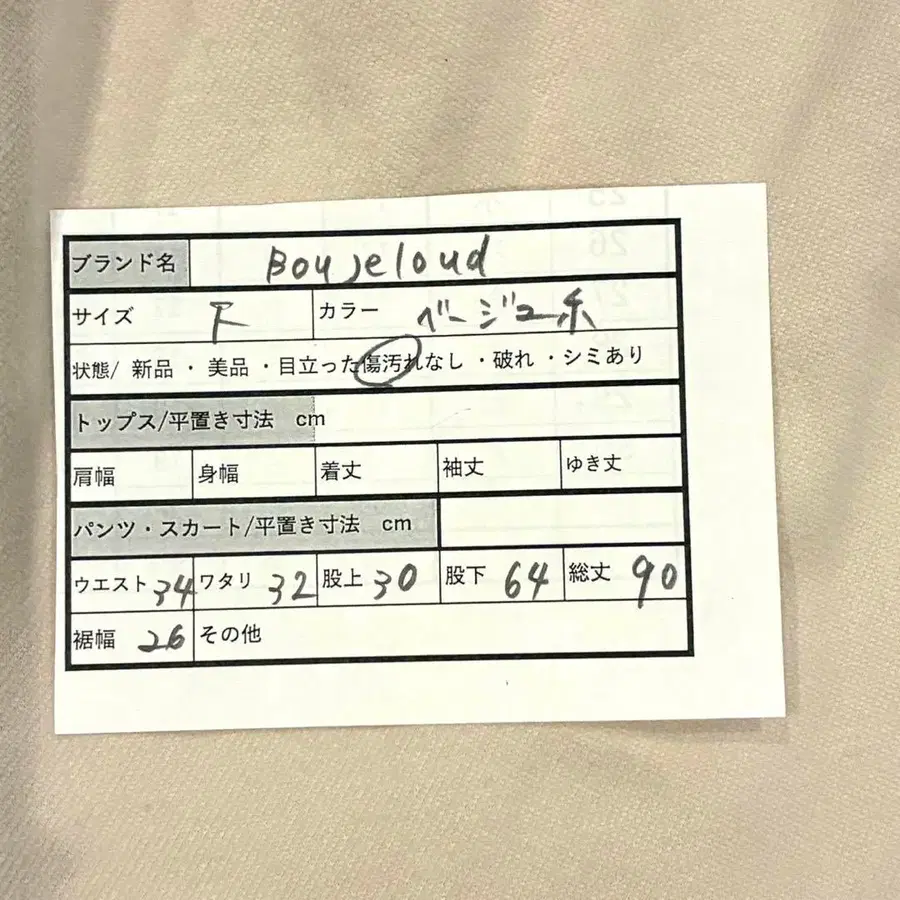 ブランド名 Boujeloud
サイズ F カラー ベージュ系
状態/ 新品 ・ 美品 ・目立った傷汚れなし ・破れ ・シミあり
トップス/平置き寸法 cm
肩幅 身幅 着丈 袖丈 ゆき丈
パンツ・スカート/平置き寸法 cm
ウエスト 34 ワタリ 32 股上 30 股下 64 総丈 90
裾幅 26 その他